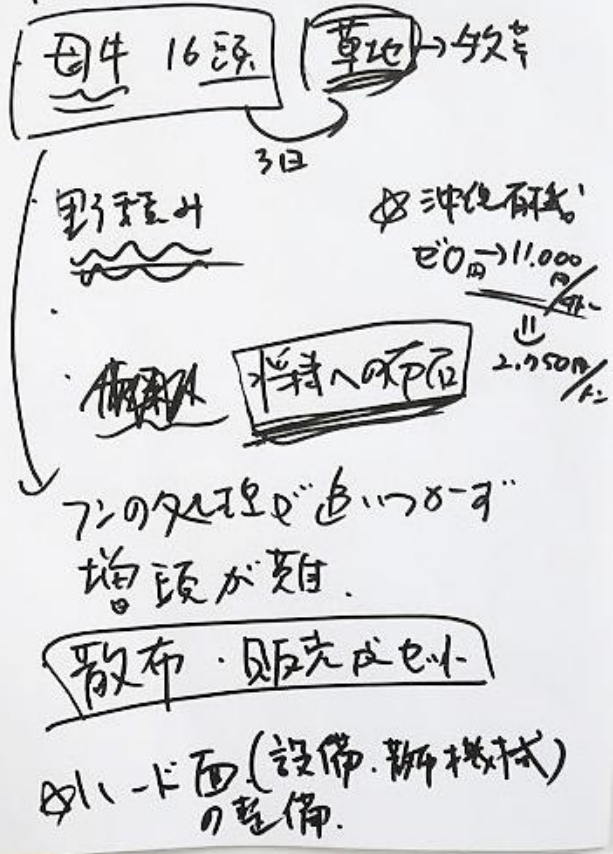 母牛 16頭 草地→牧草
3回
野積み
☆沖縄有機
ゼロ円→11.000円/4トン
=
2.750円/トン
将来への布石
フンの処理が追いつかず
増頭が難.
散布・販売はセット
☆ハード面(設備.散布機械)
の整備.